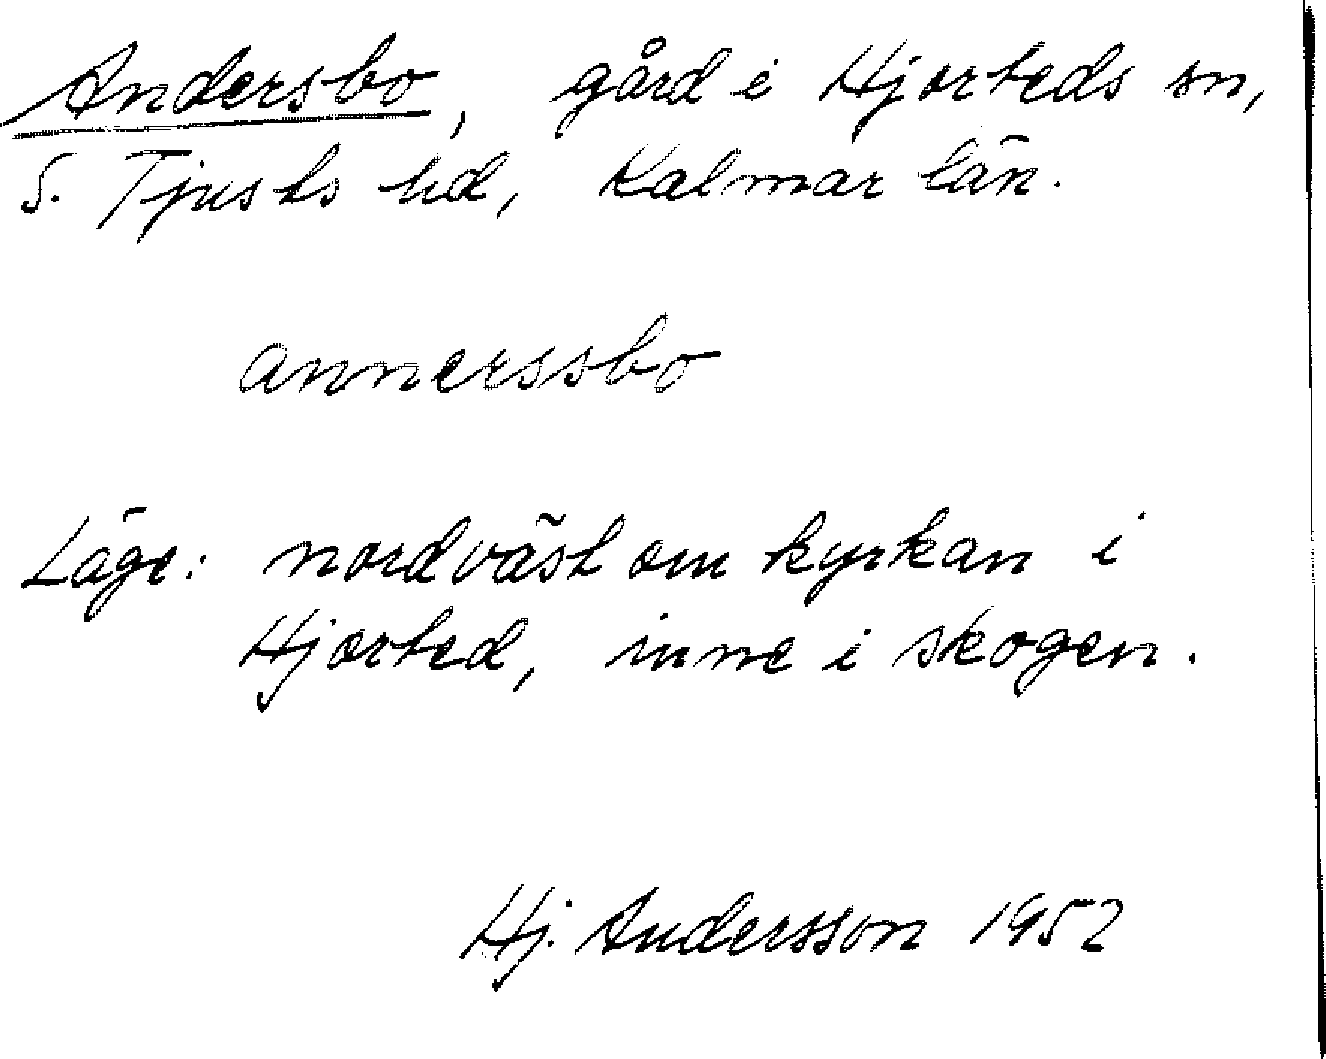 Andersbo, gård i Hjorteds sn,
S. Tjusts hd, Kalmar län.
annerssbo
Läge: nordväst om kyrkan i
Hjorted, inne i skogen.
Hj. Andersson 1952